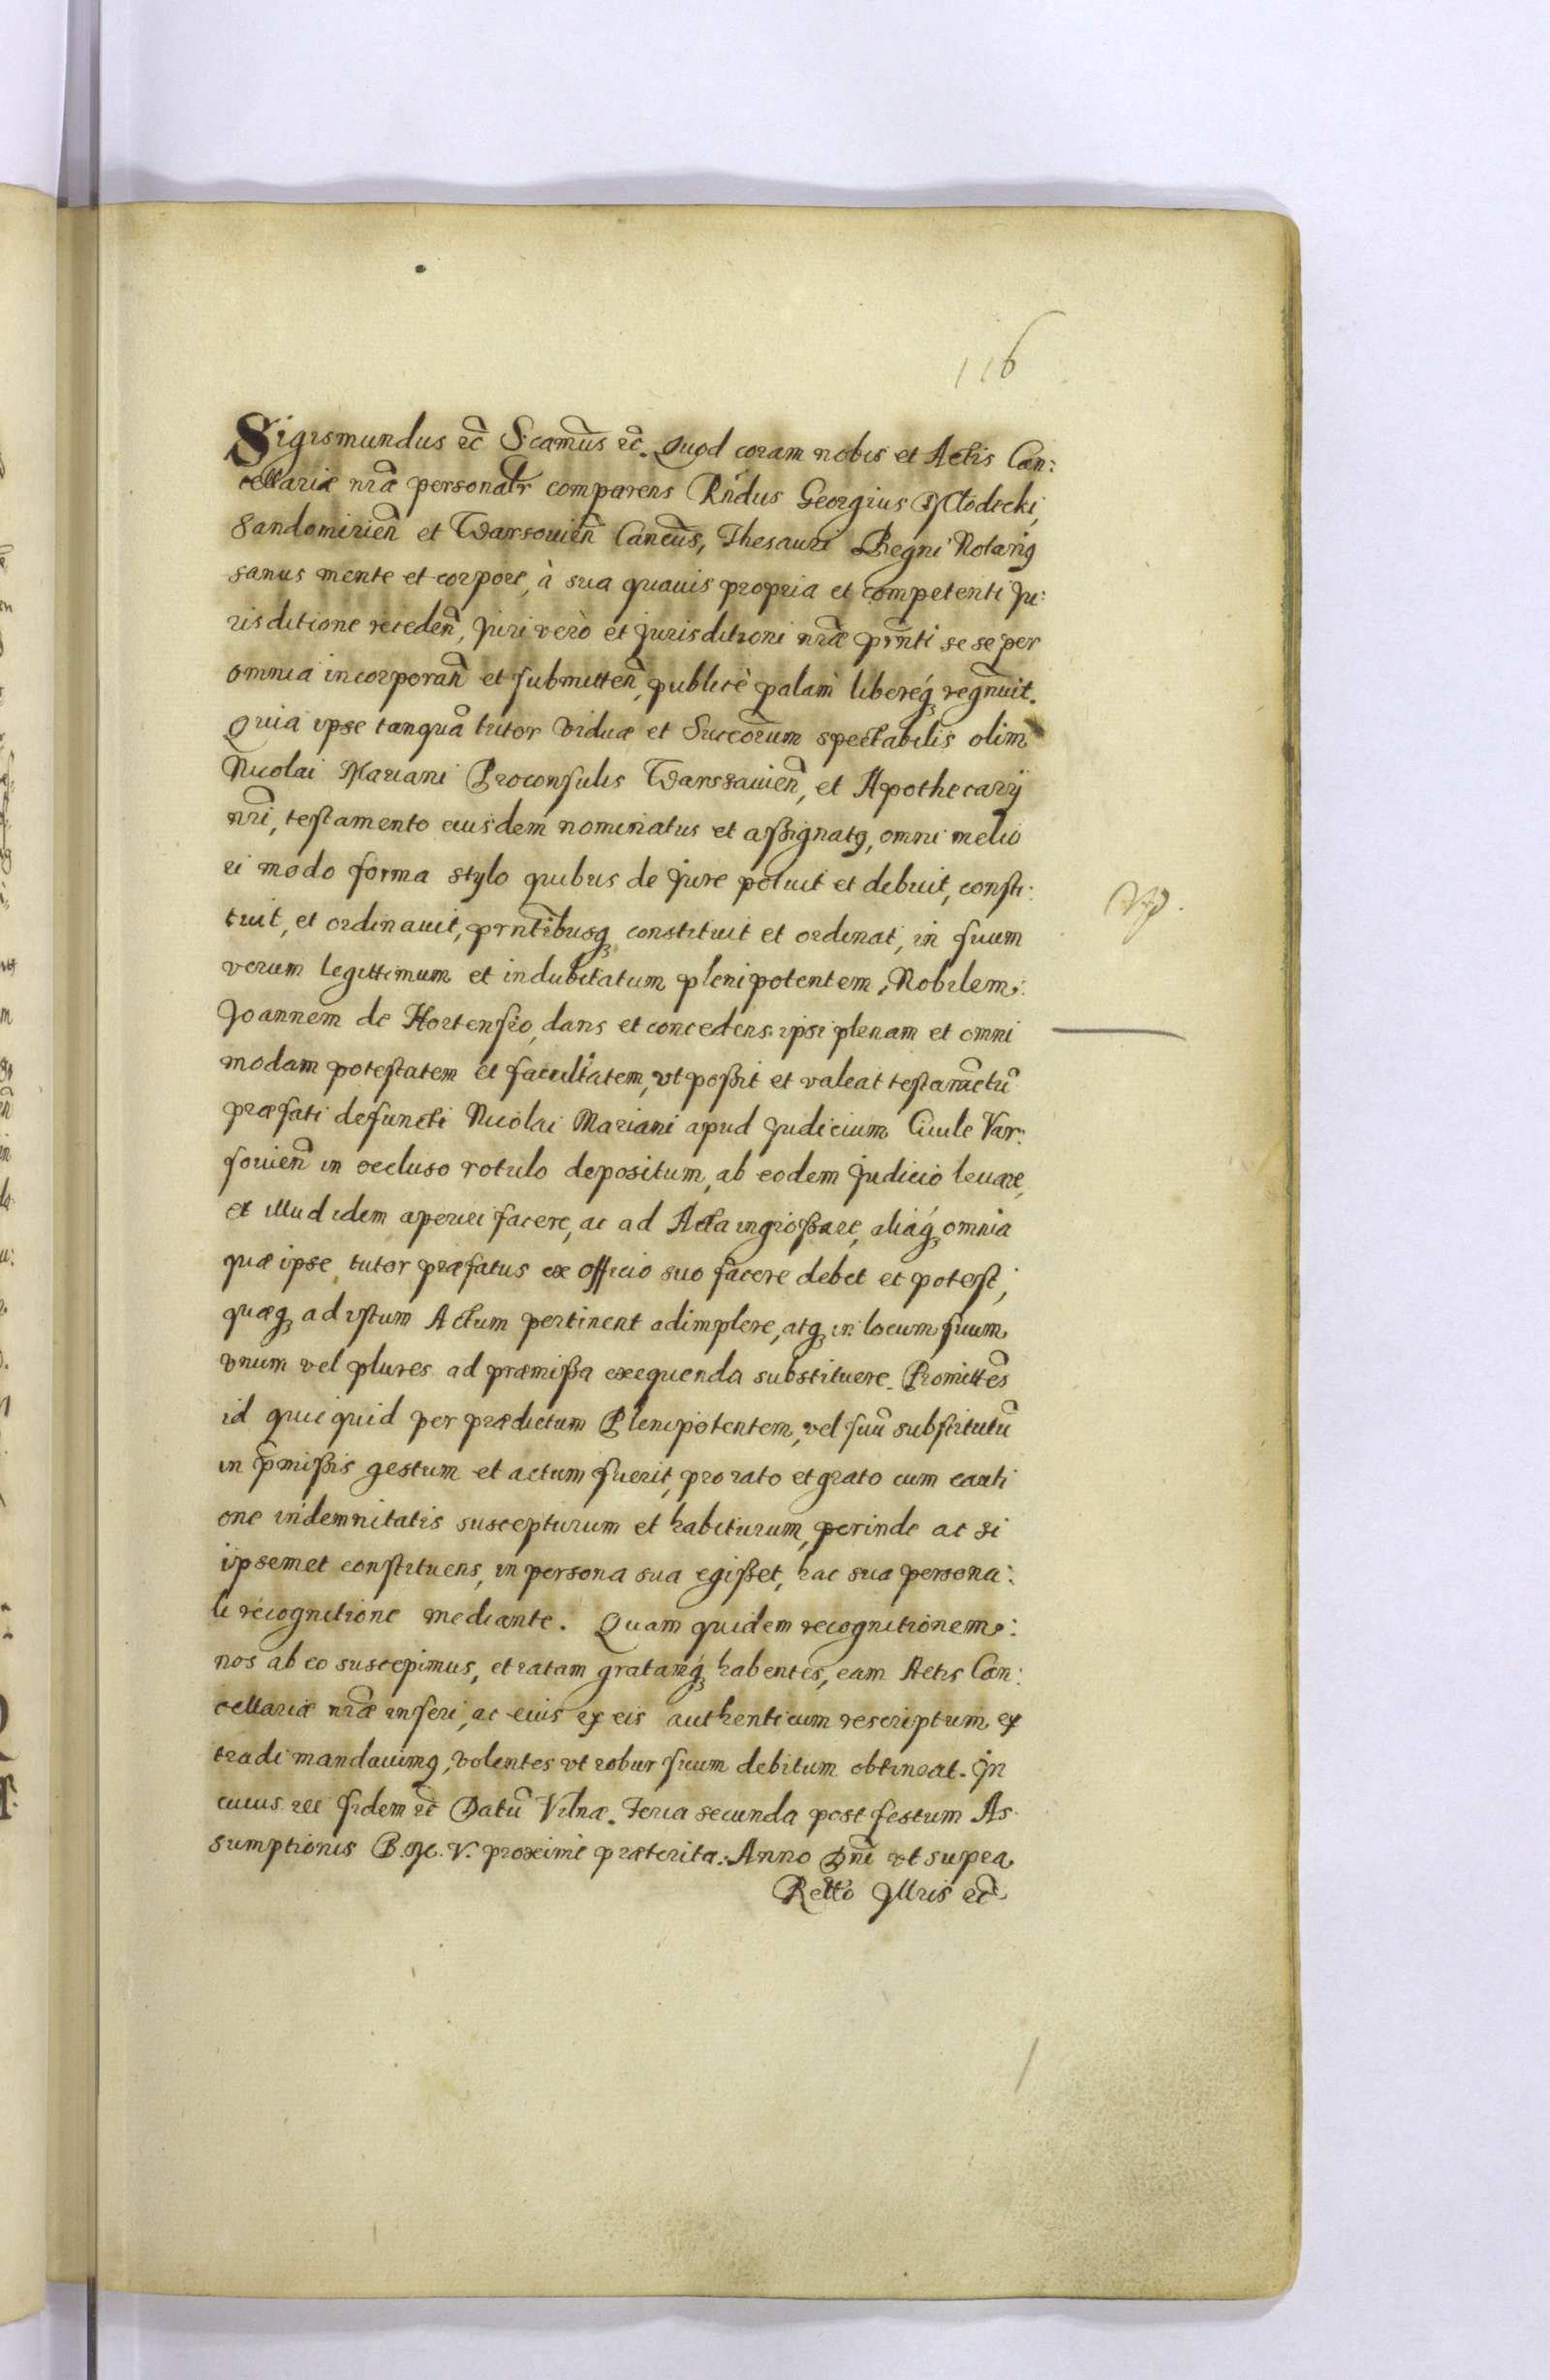 116
Sigismundus etc̃ S:camus̃ etc̃. Quod coram nobis et Actis Can:
cellariæ nr̃æ personalr̃ comparens Rñdus Georgius Młodecki,
Sandomirien̄ et Warsovien̄ Cancus̃, Thesauri Regni Notarig
sanus mente et corpore, à sua quauis propria et competenti Ju:
risditione receden̄, Juri verò et Jurisditioni nr̃æ prñti se se per
omnia incorporan̄ et submitten̄, publicè palam libereq́ regnũit.
Quia ipse tanquã tutor viduæ et Succorũm spectabilis olim
Nicolai Mariani Proconsulis Warssauien̄, et Apothecarij
nr̃i, testamento eiusdem nominatus et aßignatg, omni melio
ri modo forma stylo quibus de Jure potuit et debuit, consti:
tuit, et ordinauit, prñtibusq constituit et ordinat, in suum
verum legittimum et indubitatum plenipotentem, Nobilem:
Joannem de Hortensio, dans et concedens ipsi plenam et omni
modam potestatem et facultatem, vt poßit et valeat testamẽtũ
præfati defuncti Nicolai Mariani apud Judicium Ciuile Var:
souien̄ in occluso rotulo depositum, ab eodem Judicio leuare,
et illud idem aperiri facere, ac ad Acta ingroßare, aliaq́ omnia
quæ ipse tutor præfatus ex officio suo facere debet et potest,
quæq ad istum Actum pertinent adimplere, atq in locum suum
vnum vel plures ad præmißa exequenda substituere. Promittẽs
id quicquid per prædictum Plenipotentem, vel suũ substitutũ
in p̃mißis gestum et actum fuerit, pro rato et grato cum cauti
one indemnitatis suscepturum et habiturum, perinde ac si
ipsemet constituens, in persona sua egißet, hac sua persona:
li recognitione mediante. Quam quidem recognitionem:
nos ab eo suscepimus, et ratam gratamq́ habentes, eam Actis Can:
cellariæ nr̃æ inseri, ac eius ex eis authenticum rescriptum ex
tradi mandauimg, volentes vt robur suum debitum obtineat. In
cuius rei fidem etc̃ Datũ Vilnæ. Feria secunda post festum As
sumptionis B.M.V. proximè præterita. Anno Dñi vt supra
Rel̃lo Jllris etc̃